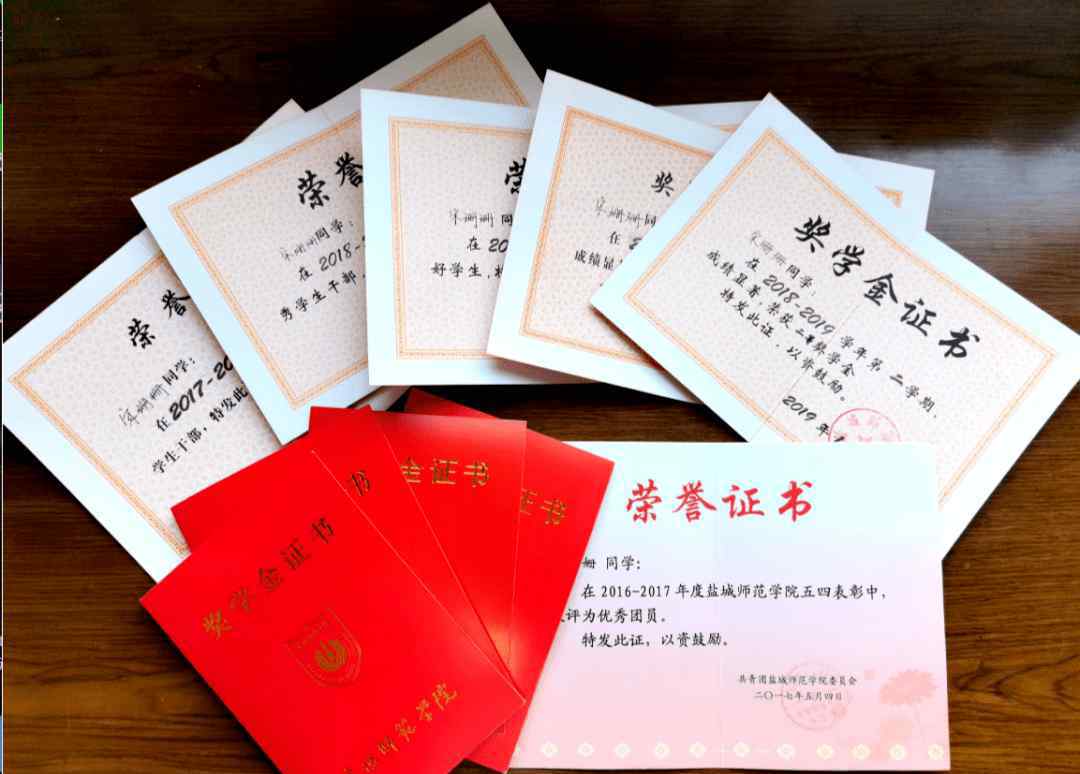 荣誉
宋姗姗同学：
在2017-20
学生干部，特发此
荣誉
宋姗姗同学：
在2018-2
秀学生干部，
荣
宋姗姗同
在20
好学生，
奖
宋姗姗同
在2
成绩显
奖学金证书
宋姗姗同学，
在2018-2019学年第二学期，
成绩显著，荣获二等奖学金
特发此证，以资鼓励。
2019年
奖学金证书
师范学院
书
金证书
证书
荣誉证书
姗 同学：
在2016-2017年度盐城师范学院五四表彰中，
评为优秀团员。
特发此证，以资鼓励。
共青团盐城师范学院委员会
二〇一七年五月四日